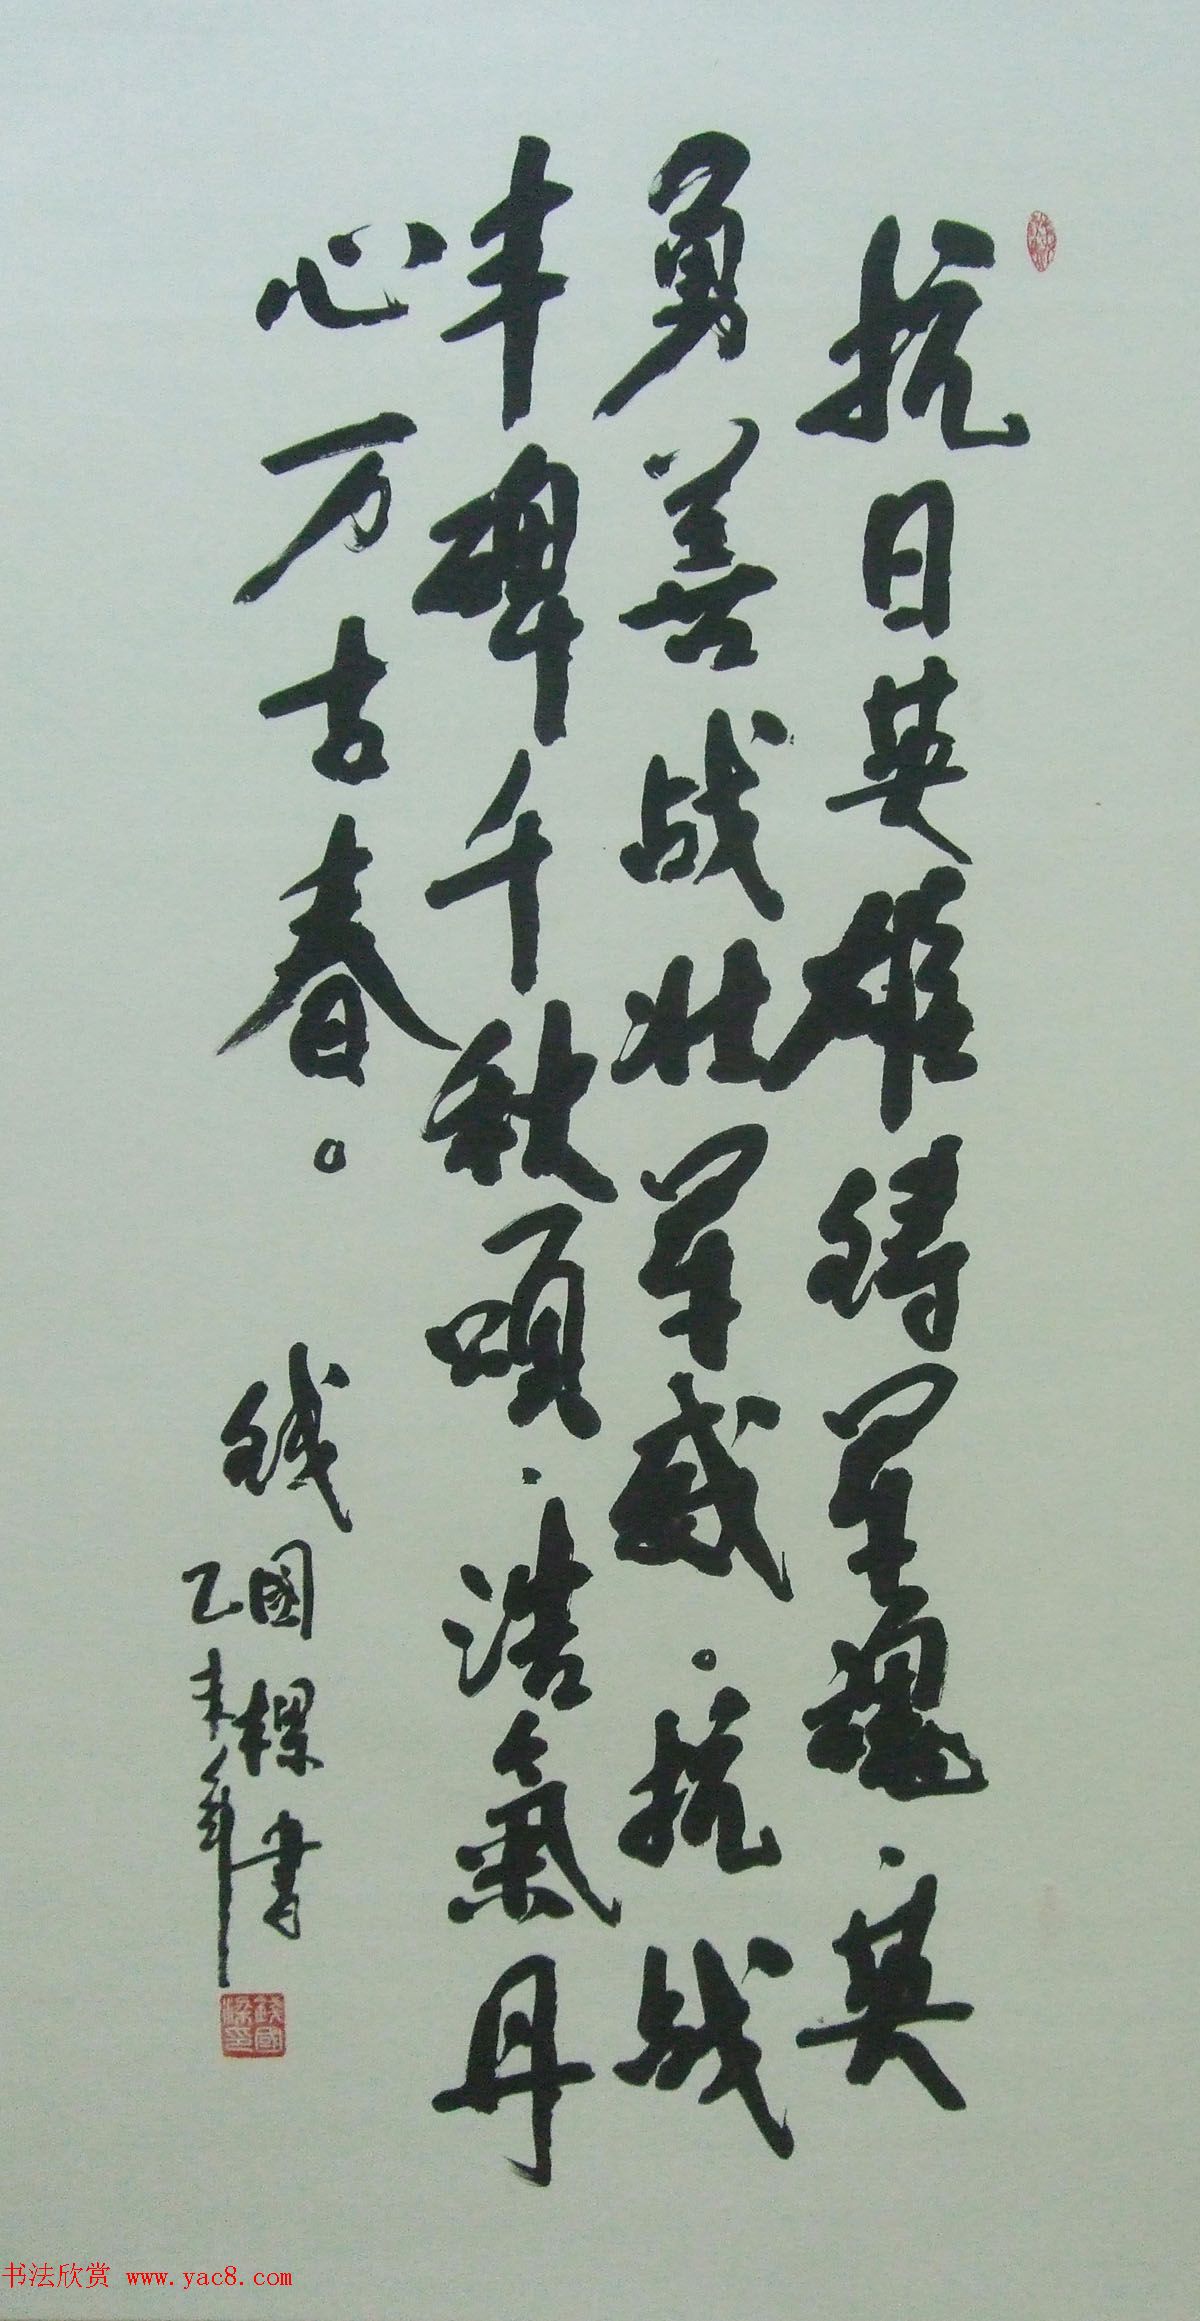 抗日英雄铸军魂.英
勇善战壮军威。抗战
丰碑千秋颂.浩氣丹
心万古春。
钱國樑書
乙未年
錢國樑印
书法欣赏 www.yac8.com